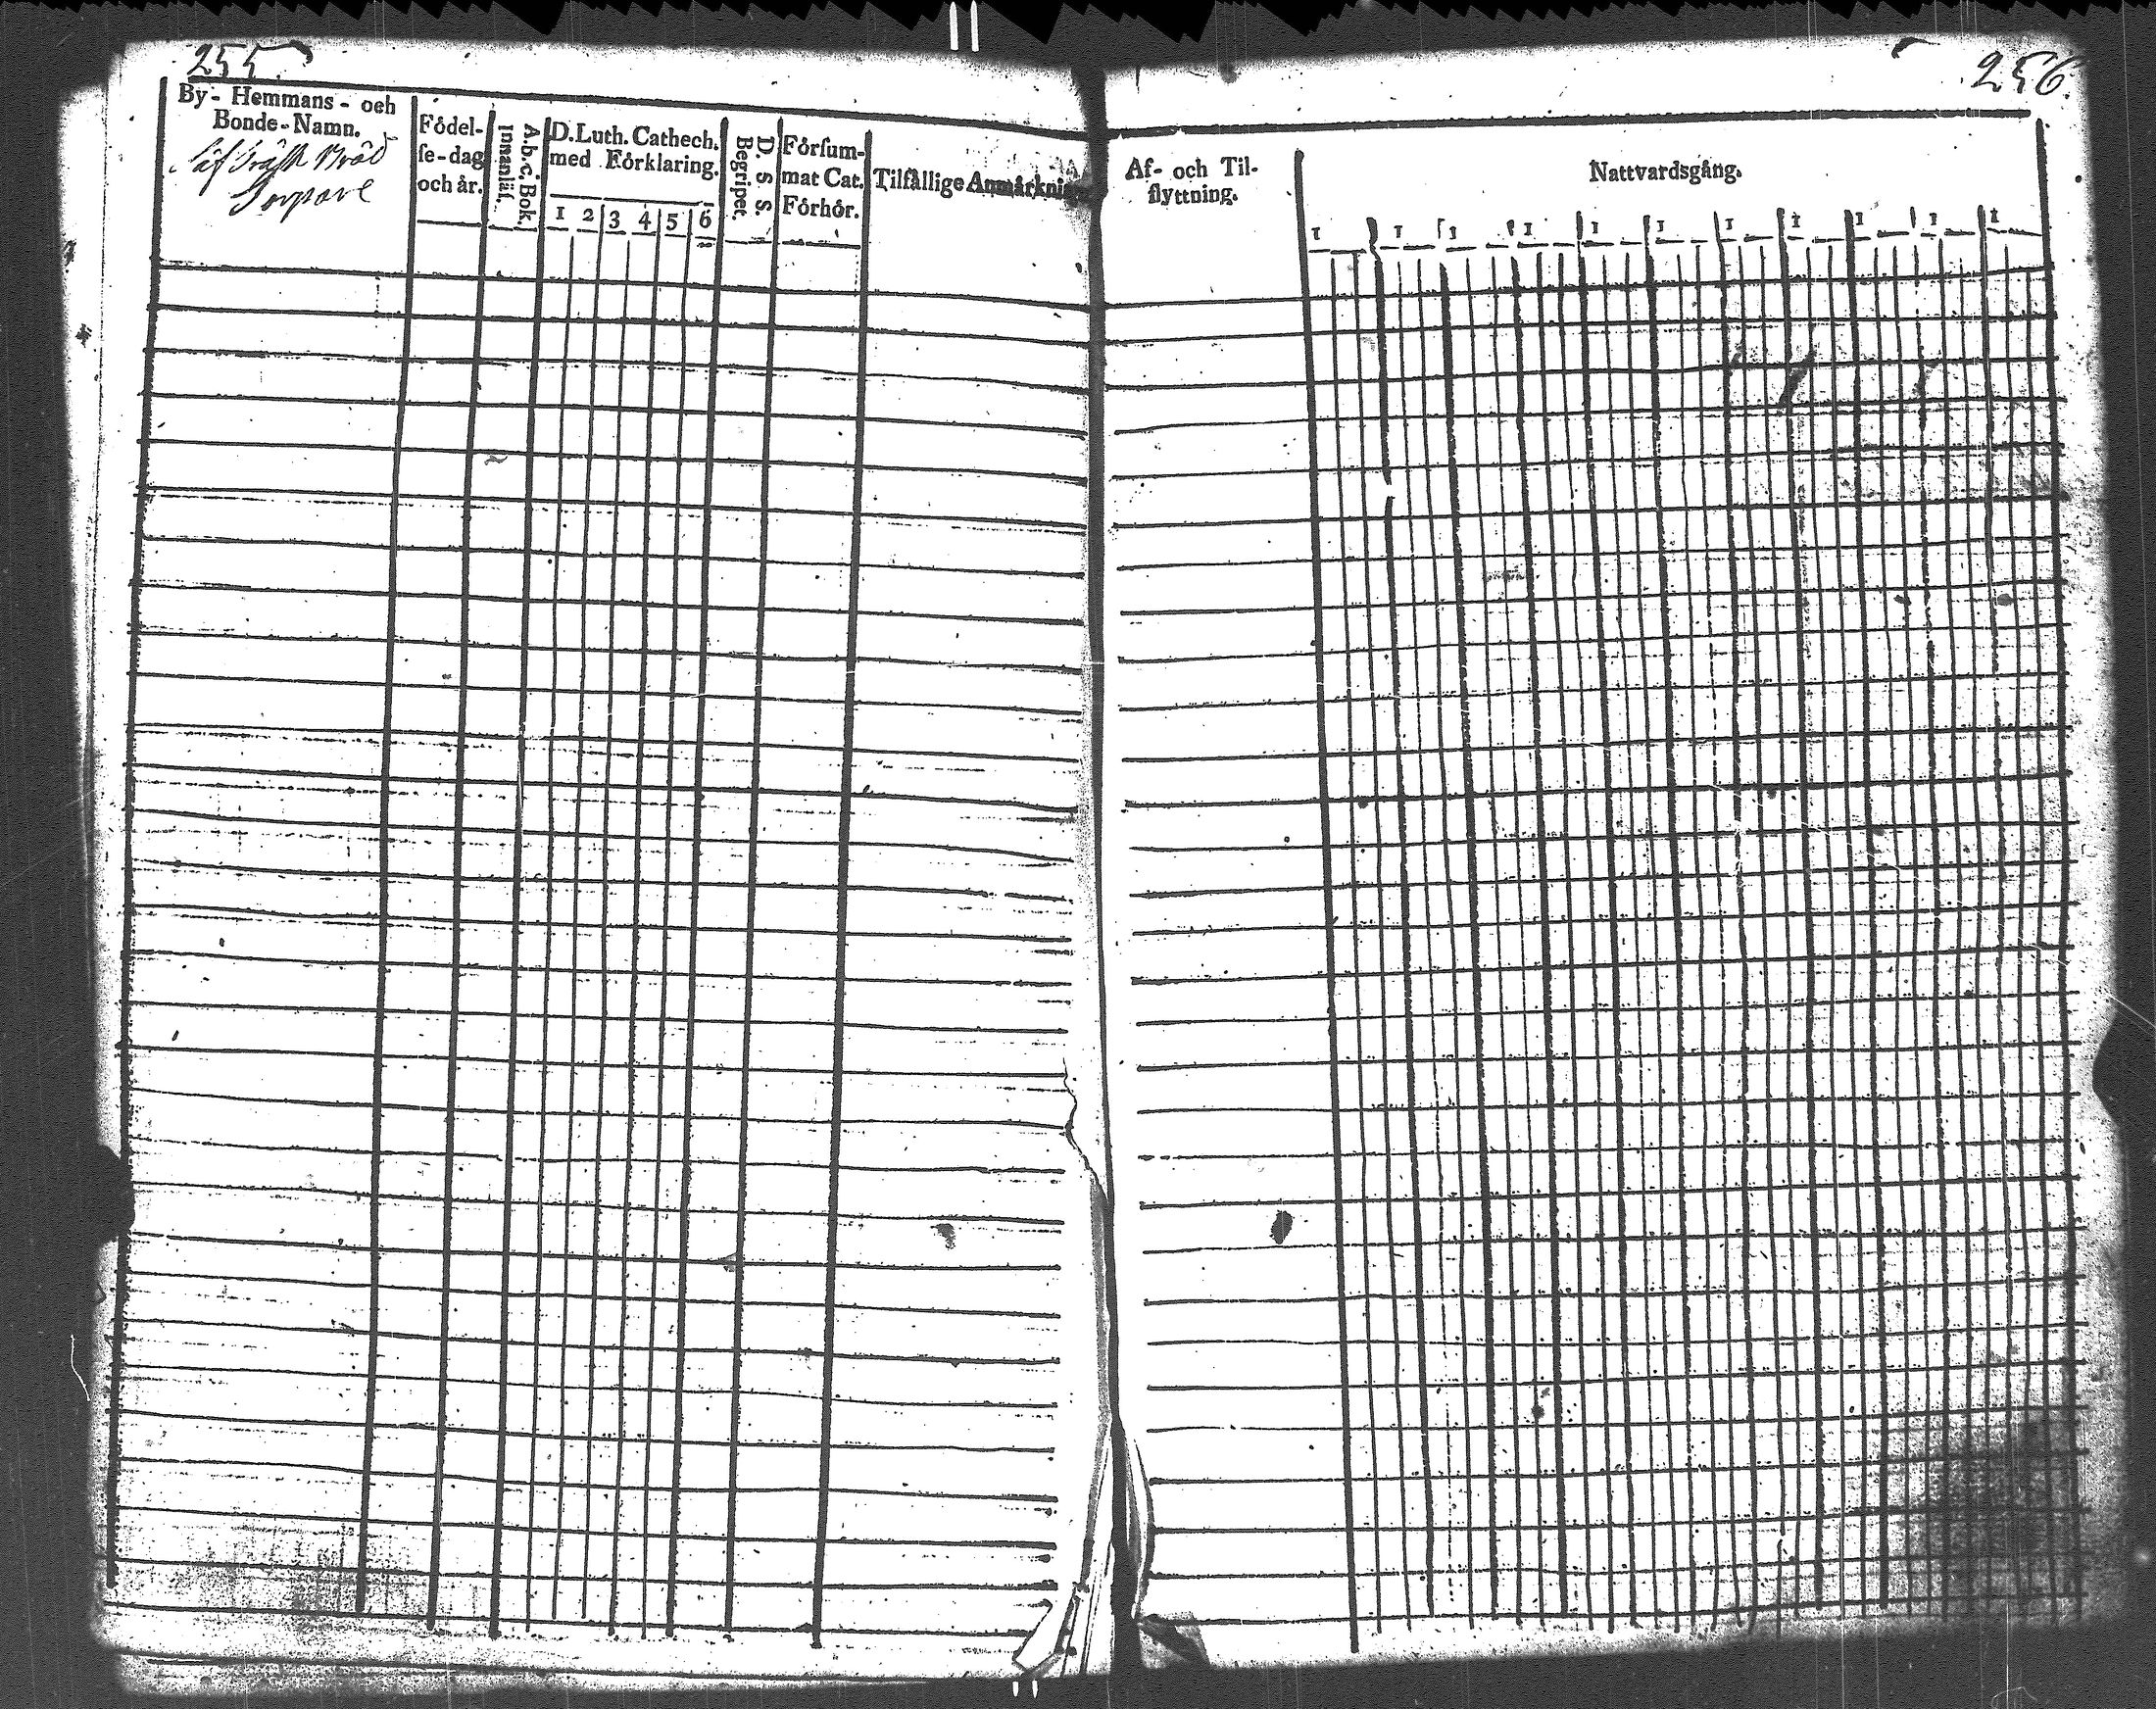 255
By- Hemmans- och
Bonde-Namn.
Torpare
Födel-
se-dag
och år.
A.b.c. Bok.
Innanläs.
D. Luth. Cathech.
med Förklaring.
1 2 3 4 5 6
D. S. S.
Begripet.
Försum-
mat Cat.
Förhör.
Tilfällige Anmärkni
256
Af- och Til-
flyttning.
Nattvardsgång.
1 1 1 1 1 1 1 1 1 1 1